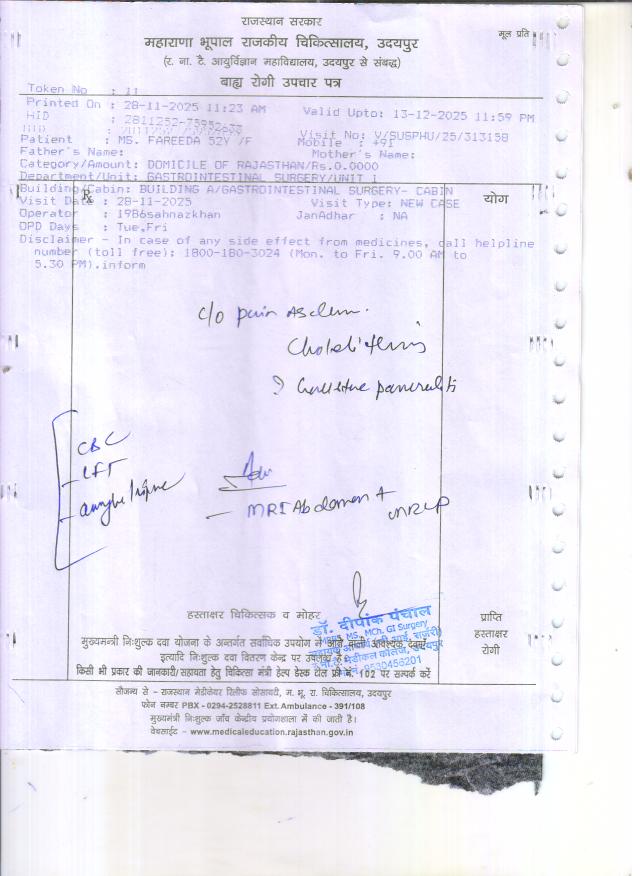 राजस्थान सरकार
मूल प्रति
महाराणा भूपाल राजकीय चिकित्सालय, उदयपुर
(र. ना. टै. आयुर्विज्ञान महाविद्यालय, उदयपुर से संबद्ध)
बाह्य रोगी उपचार पत्र
Token No : 11
Printed On : 28-11-2025 11:23 AM Valid Upto: 13-12-2025 11:59 PM
HID :
Visit No: V/SUSPHU/25/313158
Patient : MS. FAREEDA 52Y /F Mobile : +91
Father's Name: Mother's Name:
Category/Amount: DOMICILE OF RAJASTHAN/Rs.0.0000
Department/Unit: GASTROINTESTINAL SURGERY/UNIT 1
Building/Cabin: BUILDING A/GASTROINTESTINAL SURGERY- CABIN
Rx
योग
Visit Date : 28-11-2025 Visit Type: NEW CASE
Operator : 1986sahnazkhan JanAdhar : NA
OPD Days : Tue,Fri
Disclaimer - In case of any side effect from medicines, call helpline
number (toll free): 1800-180-3024 (Mon. to Fri. 9.00 AM to
5.30 PM).inform
c/o pain
CBC
LFT
Adv
MRI Abdomen +
MRCP
हस्ताक्षर चिकित्सक व मोहर
डॉ. दीपांक पंचाल
MBBS, MS, MCh. GI Surgery
प्राप्ति
हस्ताक्षर
रोगी
मुख्यमंत्री निःशुल्क दवा योजना के अन्तर्गत सर्वाधिक उपयोग में आने वाली आवश्यक दवाएं
इत्यादि निःशुल्क दवा वितरण केन्द्र पर उपलब्ध है
किसी भी प्रकार की जानकारी/सहायता हेतु चिकित्सा मंत्री हेल्प डेस्क टोल फ्री नं. 102 पर सम्पर्क करें
सौजन्य से - राजस्थान मेडीकेयर रिलीफ सोसायटी, म. भू. रा. चिकित्सालय, उदयपुर
फोन नम्बर PBX - 0294-2528811 Ext. Ambulance - 391/108
मुख्यमंत्री निःशुल्क जाँच केन्द्रीय प्रयोगशाला में की जाती है।
वेबसाईट - www.medicaleducation.rajasthan.gov.in